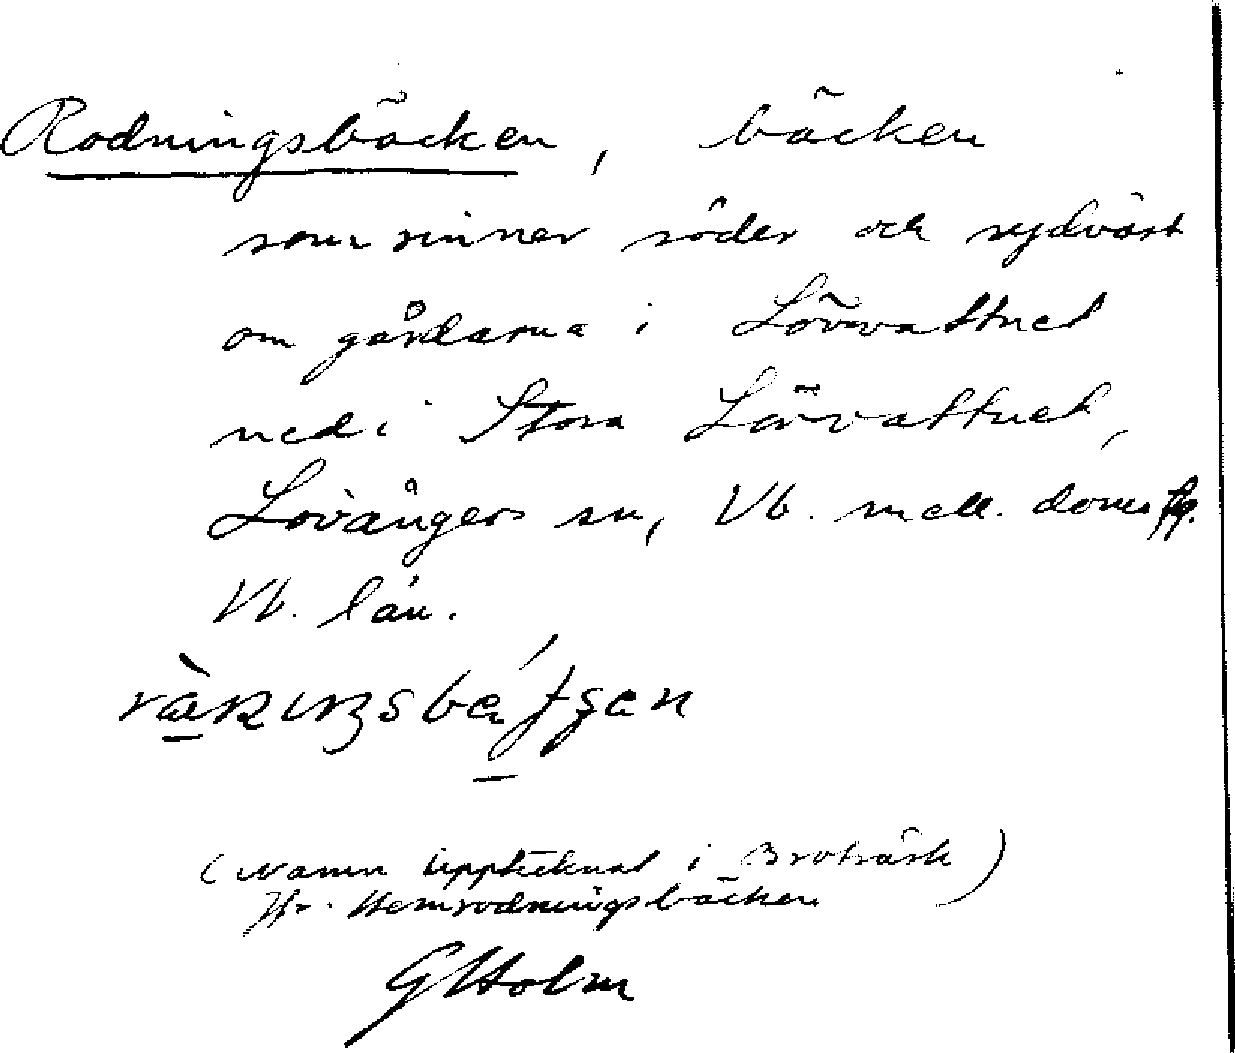 Rodningsbäcken, bäcken
som rinner söder och sydväst
om gårdarna i Lövvattnet
ned i Stora Lövvattnet,
Lövångers sn, Vb. mell. doms
Vb. län.
(Namn upptecknat i Broträsk)
Jfr. Hemrodningsbäcken
G Holm